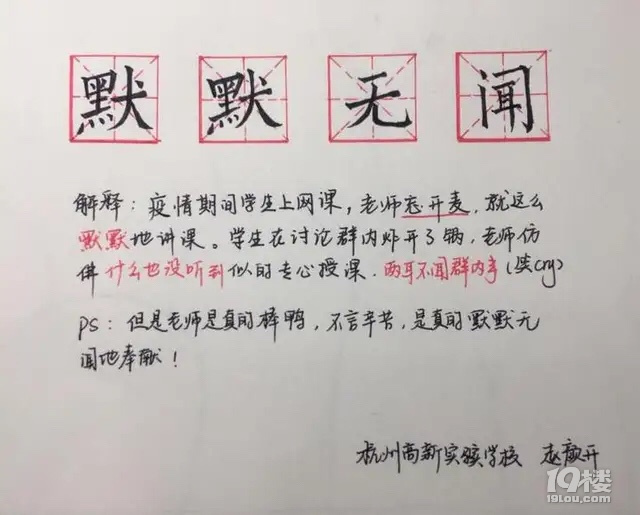 默默无闻
解释：疫情期间学生上网课，老师忘开麦，就这么
默默地讲课。学生在讨论群内炸开了锅，老师仿
佛什么也没听到似的专心授课．两耳不闻群内事（笑cry）
PS：但是老师是真的棒鸭，不言辛苦，是真的默默无
闻地奉献！
杭州高新实验学校 赵
19楼
19lou.com